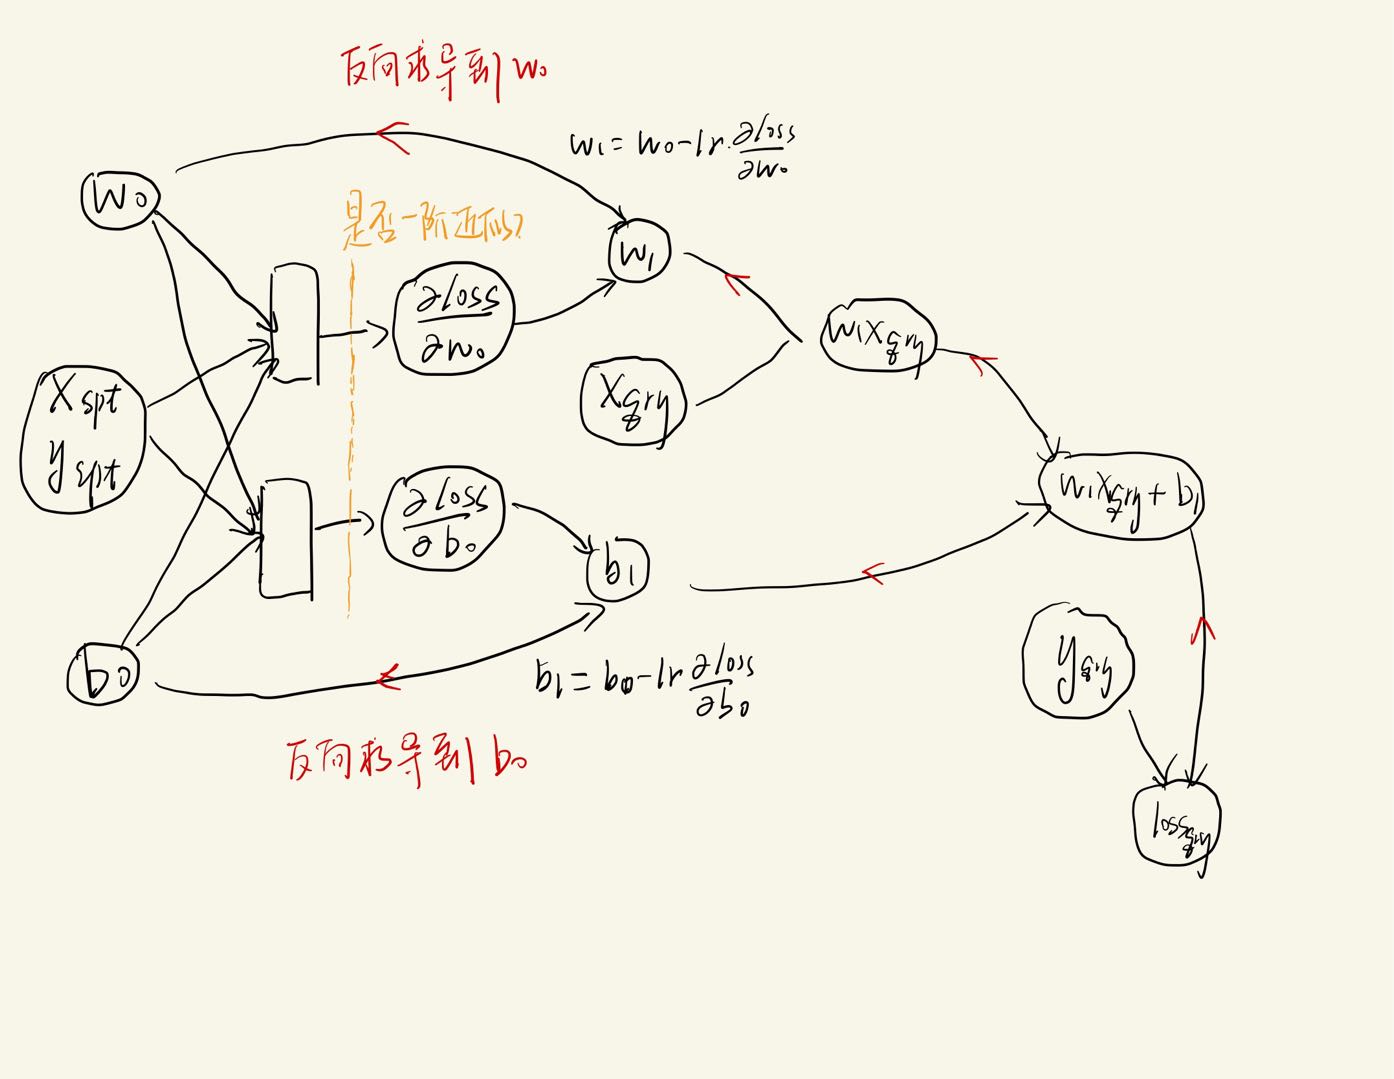 反向求导到 w₀
w₁ = w₀ - lr · ∂loss/∂w₀
w₀
是否一阶近似?
w₁
∂loss/∂w₀
w₁xqry
xspt
yspt
xqry
w₁xqry + b₁
∂loss/∂b₀
b₁
yqry
b₀
b₁ = b₀ - lr ∂loss/∂b₀
反向求导到 b₀
lossqry